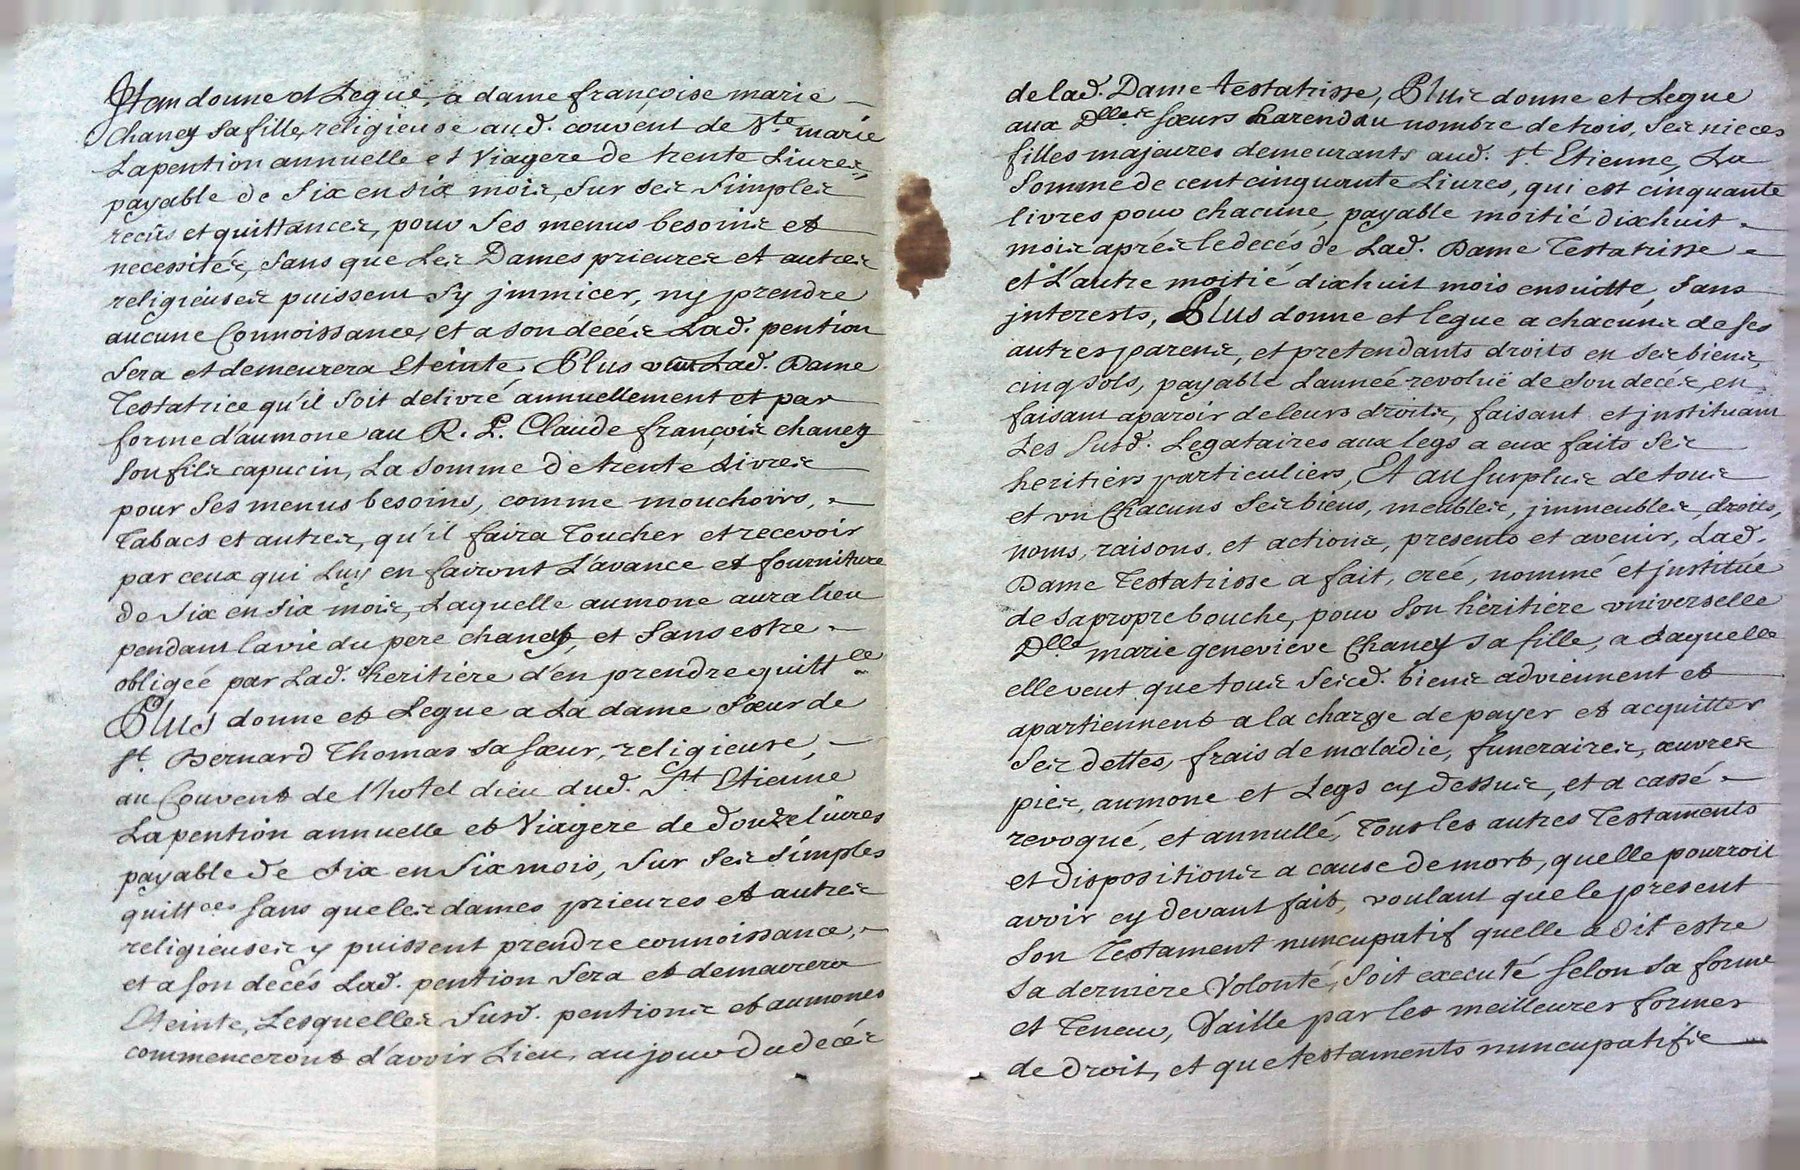 Item donne et Legue, a dame françoise marie
Chaney sa fille, religieuse aud. couvent de Ste. marie
La pention annuelle et Viagere de trente Livres,
payable de six en six mois, sur ses simples
recûs et quittances, pour ses menus besoins et
necessités, sans que les Dames prieures et autres
religieuses puissent s'y jmmicer, ny prendre
aucune Connoissance, et a son decés Lad. pention
sera et demeurera Eteinte, Plus veut Lad. Dame
Testatrice qu'il soit delivré annuellement et par
forme d'aumone au R. P. Claude françois chaney
son fils capucin, La somme de trente Livres
pour ses menus besoins, comme mouchoirs,
Tabacs et autres, qu'il faira Toucher et recevoir
par ceux qui Luy en fairont L'avance et fourniture
de six en six mois, Laquelle aumone aura lieu
pendant la vie du pere chaney, et sans estre
obligée par Lad. heritiére d'en prendre quittce.
Plus donne et Legue a La dame Sœur de
st. Bernard Thomas sa sœur, religieuse,
au Couvent de l'hotel dieu dud. St Etienne
La pention annuelle et Viagere de douze livres
payable de six en six mois, sur ses simples
quittces sans que les dames prieures et autres
religieuses y puissent prendre connoissance,
et a son decés Lad. pention sera et demeurera
Eteinte, Lesquelles susd. pentions et aumones
commenceront d'avoir Lieu, au jour du decés
de lad. Dame testatrisse, Plus donne et Legue
aux Dlles. sœurs harend au nombre de trois, ses nieces
filles majeures demeurants aud. st Etienne, La
somme de cent cinquante Livres, qui est cinquante
livres pour chacune, payable moitié dixhuit
mois aprés le decés de Lad. Dame Testatrisse
et L'autre moitié dixhuit mois ensuitte, sans
jnterests, Plus donne et legue a chacuns de ses
autres parens, et pretendants droits en ses biens,
cinq sols, payable L'année revoluë de son decés, en
faisant aparoir de leurs droits, faisant et jnstituant
Les susd. Legataires aux legs a eux faits ses
heritiers particuliers, Et au surplus de tous
et vn Chacuns ses biens, meubles, jmmeubles, droits,
noms, raisons, et actions, presents et avenir, Lad.
Dame Testatrisse a fait, creé, nommé et jnstitüé
de sa propre bouche, pour son héritiére vniverselle
Dlle marie geneviéve Chaney sa fille, a Laquelle
elle veut que tous sesd. biens adviennent et
apartiennent a la charge de payer et acquitter
ses dettes, frais de maladie, funeraires, œuvres
pies, aumone et Legs cy dessus, et a cassé
revoqué, et annullé, Tous les autres Testaments
et dispositions a cause de mort, quelle pourroit
avoir cy devant fait, voulant que le present
son Testament nuncupatif quelle a dit estre
sa derniére Volonté, soit executé selon sa forme
et Teneur, Vaille par les meilleures formes
de droit, et que testaments nuncupatifs